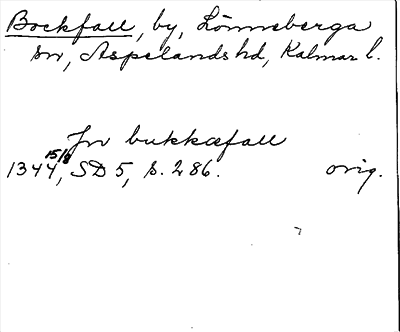 Bockfall, by, Lönneberga
sn, Aspelands hd, Kalmar l.
Jn bukkæfall
1344 15/8, SD 5, s. 286. orig.